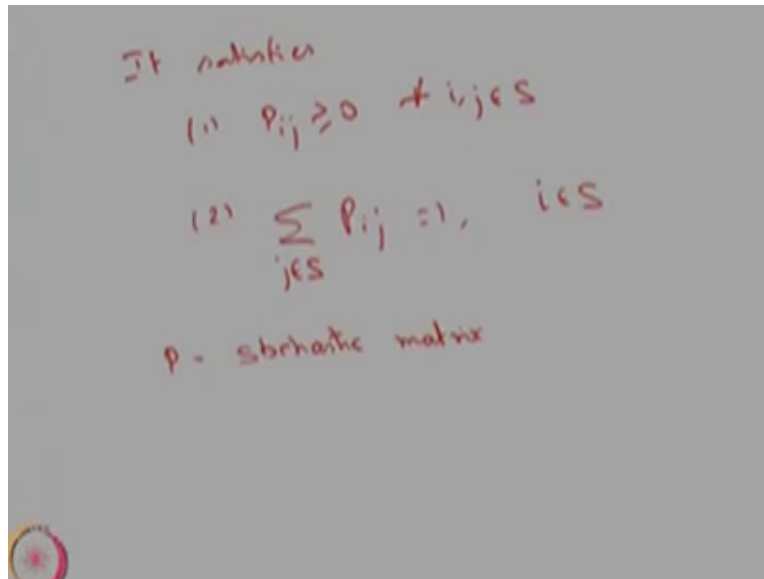 It satisfies
(1) Pij ≥ 0 ∀ i, j ∈ S
(2) ∑ Pij = 1, i ∈ S
j∈S
P - stochastic matrix